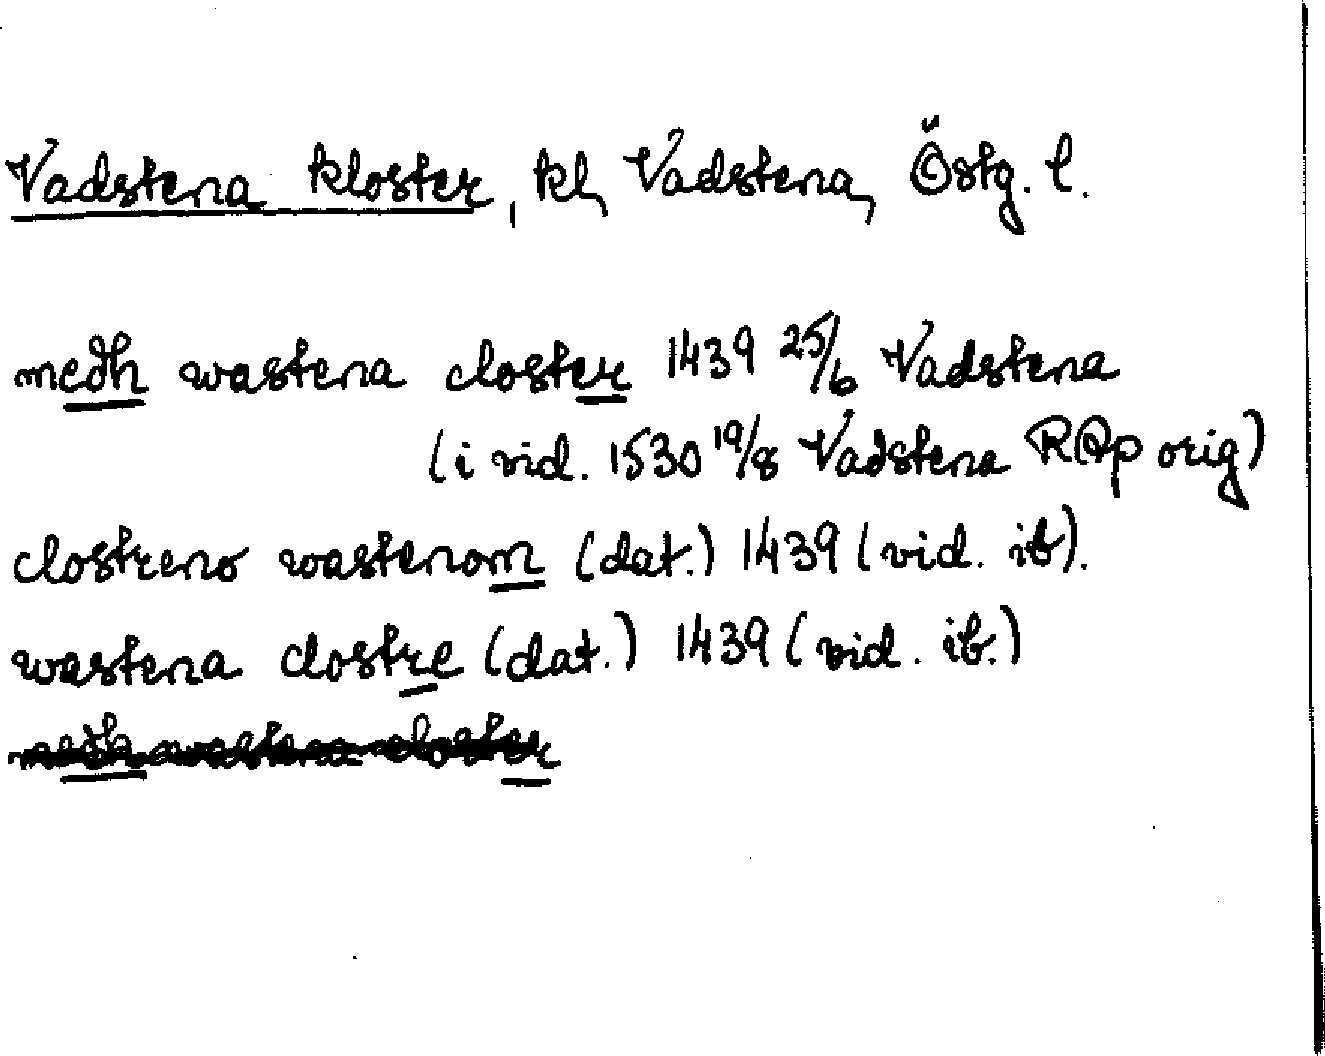 Vadstena kloster, kl, Vadstena, Östg. l.
medh wastena closter 1439 25/6 Vadstena
(i vid. 1530 19/8 Vadstena RAp orig)
clostreno wastenom (dat.) 1439 (vid. ib).
wastena clostre (dat.) 1439 (vid. ib.)
medh wastena closter